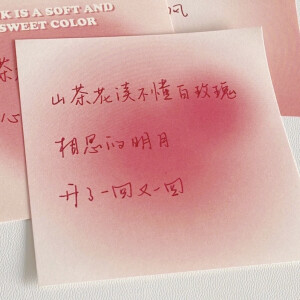 K IS A SOFT AND
SWEET COLOR
风
山茶花读不懂白玫瑰
相思的明月
升了一回又一回